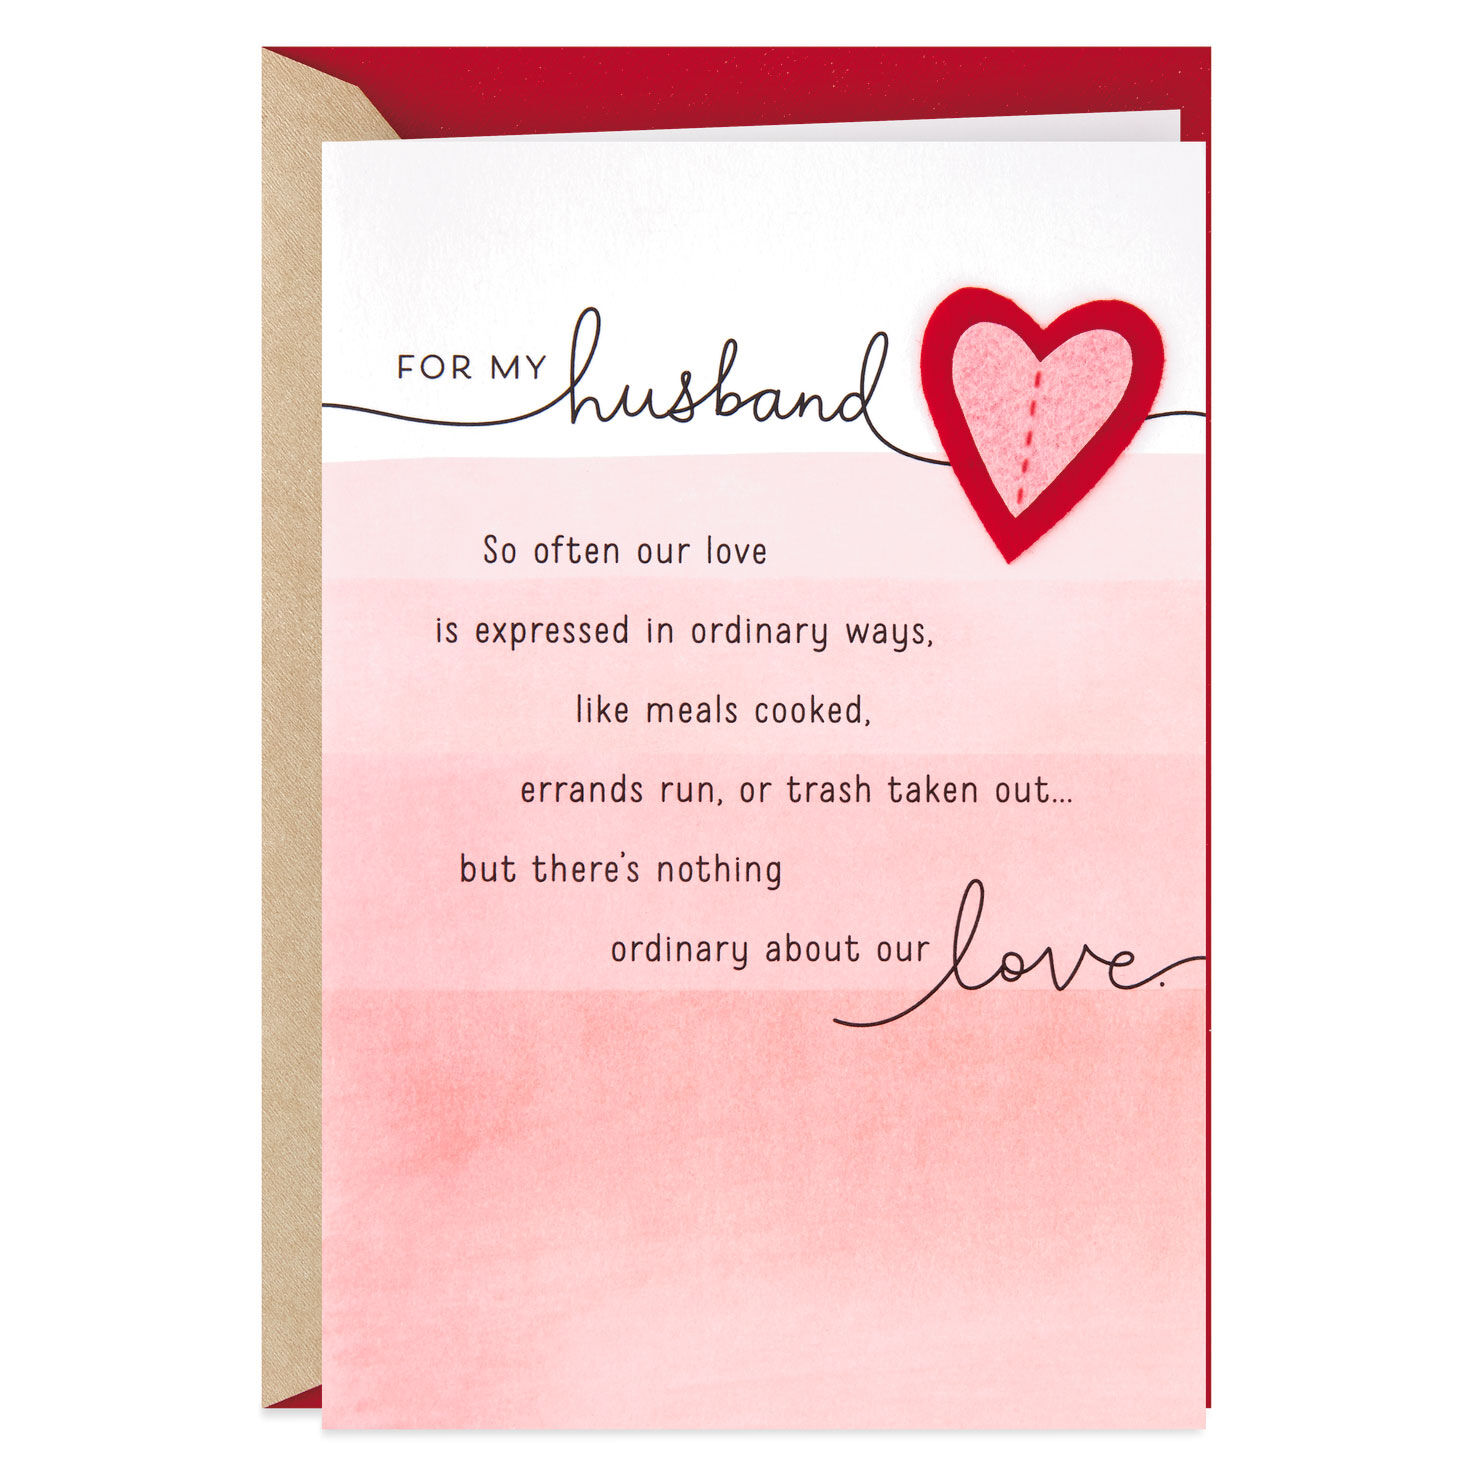 FOR MY husband
So often our love
is expressed in ordinary ways,
like meals cooked,
errands run, or trash taken out...
but there's nothing
ordinary about our love.